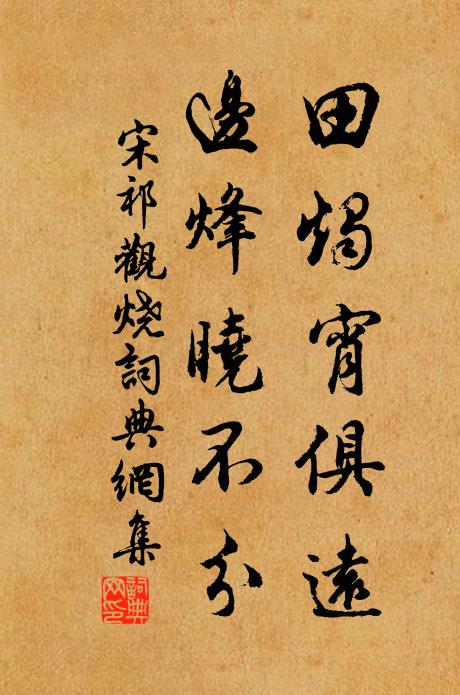 田燭宵俱遠
邊烽曉不分
宋祁觀燒詞典網集
詞典網印